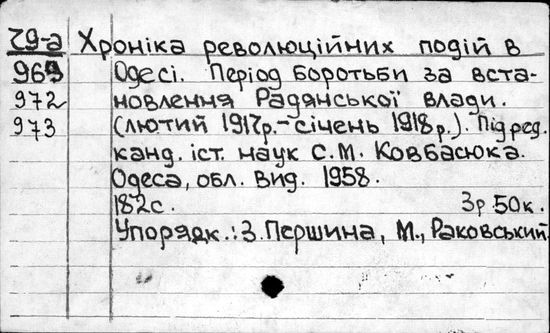 29-а Хроніка революційних подій в
969 Одесі. Період боротьби за вста-
972 новлення Радянської влади.
973 (лютий 1917р.-січень 1918р.). Під ред.
канд. іст. наук С.М. Ковбасюка.
Одеса, обл. вид. 1958.
182с. 3р 50к.
Упорядк.: З. Першина, М., Раковський.